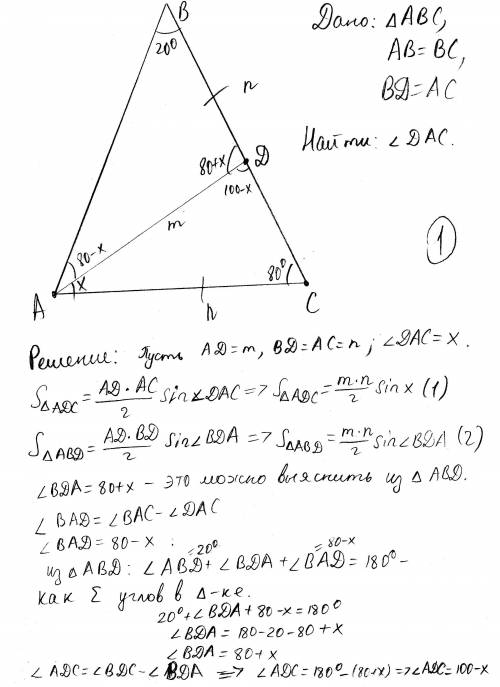 B
20°
n
80+x
D
100-x
m
80-x
x
A
80°
C
n
Дано: △ABC,
AB=BC,
BD=AC
Найти: ∠DAC.
1
Решение: Пусть AD=m, BD=AC=n; ∠DAC=x.
S△ADC = AD·AC/2 sin∠DAC => S△ADC = m·n/2 sin x (1)
S△ABD = AD·BD/2 sin∠BDA => S△ABD = m·n/2 sin∠BDA (2)
∠BDA=80+x – это можно выяснить из △ABD.
∠BAD=∠BAC-∠DAC
∠BAD=80-x;
=20° =80-x
из △ABD: ∠ABD+∠BDA+∠BAD=180° –
как Σ углов в Δ-ке.
20°+∠BDA+80-x=180°
∠BDA=180-20-80+x
∠BDA=80+x
∠ADC=∠BDC-∠BDA => ∠ADC=180°-(80+x)=>∠ADC=100-x